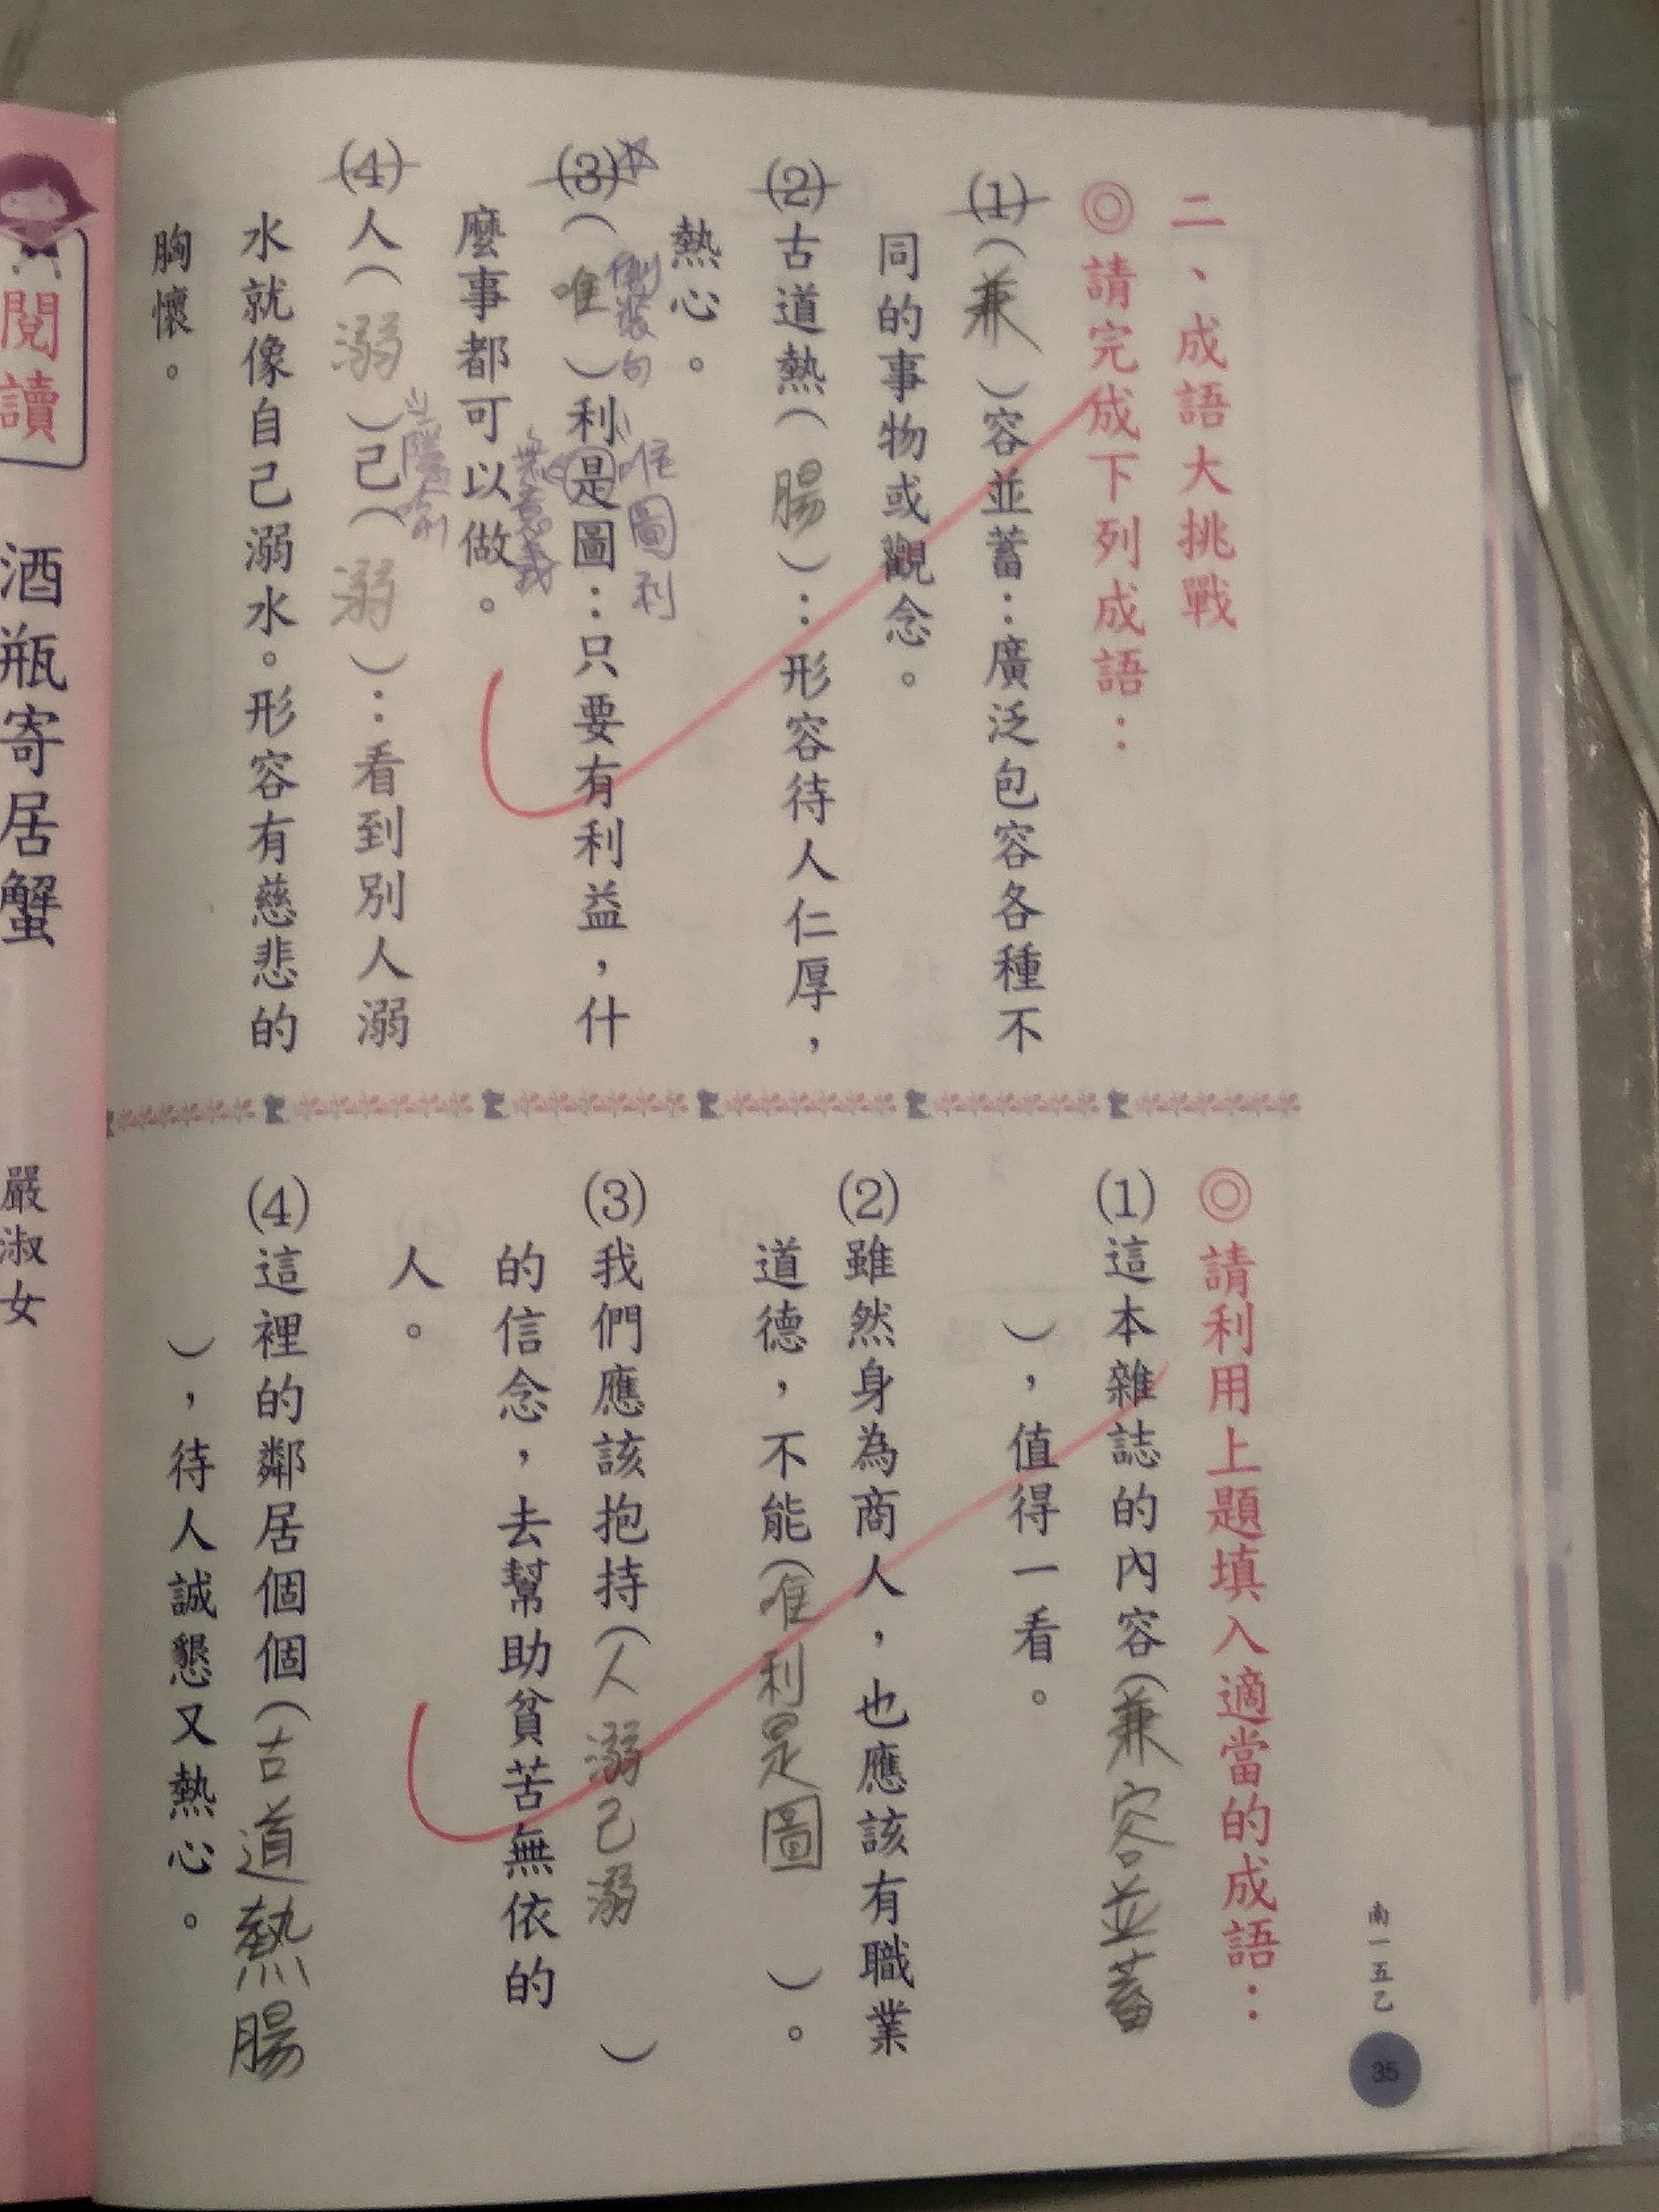 二、成語大挑戰
◎請完成下列成語：
(1)（兼）容並蓄：廣泛包容各種不
同的事物或觀念。
(2)古道熱（腸）：形容待人仁厚，
熱心。
倒裝句
唯圖利
(3)（唯）利是圖：只要有利益，什
無意義
麼事都可以做。
(4)人（溺）己（溺）：看到別人溺
水就像自己溺水。形容有慈悲的
胸懷。
◎請利用上題填入適當的成語：
(1)這本雜誌的內容（兼容並蓄
），值得一看。
(2)雖然身為商人，也應該有職業
道德，不能（唯利是圖）。
(3)我們應該抱持（人溺己溺）
的信念，去幫助貧苦無依的
人。
(4)這裡的鄰居個個（古道熱腸
），待人誠懇又熱心。
南一五乙
35
閱讀
酒瓶寄居蟹
嚴淑女